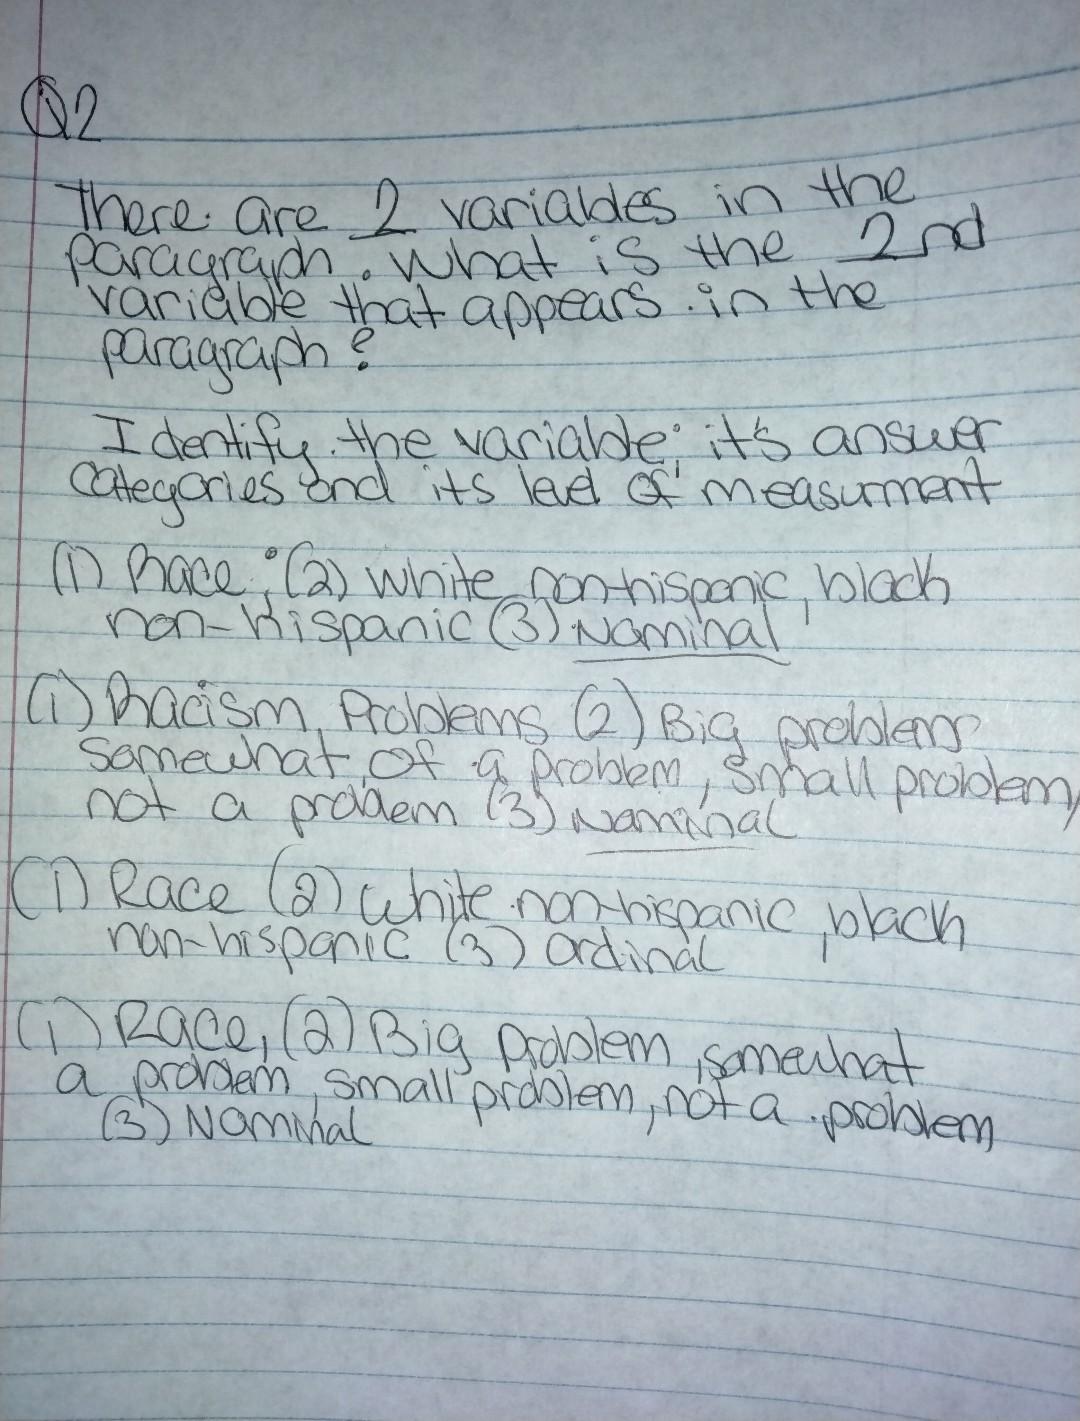 Q2
There are 2 variables in the
paragraph. What is the 2nd
variable that appears in the
paragraph?
Identify the variable; it's answer
categories and its level of measurment
(1) Race; (2) white non-hispanic, black
non-hispanic (3) Nominal
(1) Racism Problems (2) Big problem
somewhat of a problem, small problem,
not a problem (3) Nominal
(1) Race (2) white non-hispanic, black
non-hispanic (3) ordinal
(1) Race, (2) Big problem, somewhat
a problem, small problem, not a problem
(3) Nominal